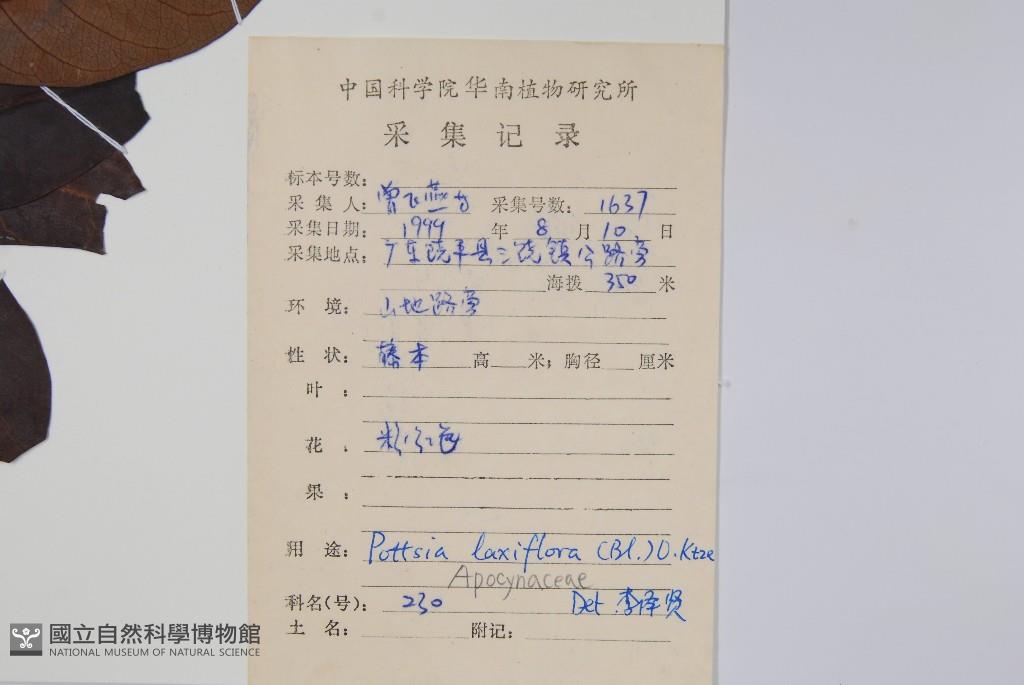 中国科学院华南植物研究所
采集记录
标本号数：
采集人：曾飞燕 采集号数：1637
采集日期：1999 年 8 月 10 日
采集地点：广东饶平县三饶镇公路旁
海拨 350 米
环境：山地路旁
性状：藤本 高 米；胸径 厘米
叶：
花：粉红色
果：
用途：Pottsia laxiflora (Bl.) O. Ktze
Apocynaceae
科名(号)：230 Det 李泽贤
土名： 附记：
國立自然科學博物館
NATIONAL MUSEUM OF NATURAL SCIENCE